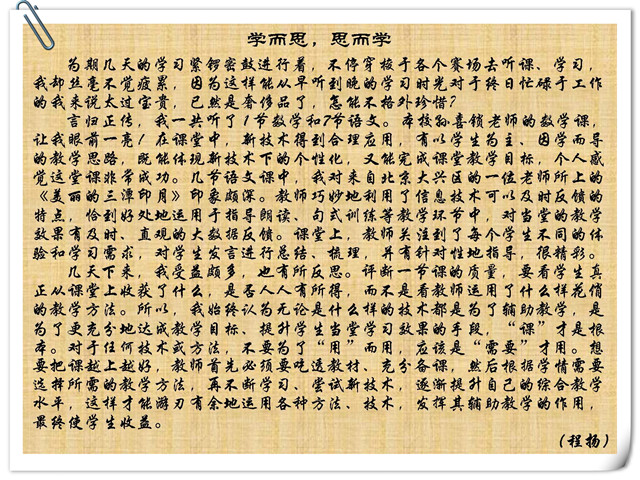 学而思，思而学
为期几天的学习紧锣密鼓进行着，不停穿梭于各个赛场去听课、学习，
我却丝毫不觉疲累，因为这样能从早听到晚的学习时光对于终日忙碌于工作
的我来说太过宝贵，已然是奢侈品了，怎能不格外珍惜？
言归正传，我一共听了1节数学和7节语文。本校孙喜锁老师的数学课，
让我眼前一亮！在课堂中，新技术得到合理应用，有以学生为主、因学而导
的教学思路，既能体现新技术下的个性化，又能完成课堂教学目标，个人感
觉这堂课非常成功。几节语文课中，我对来自北京大兴区的一位老师所上的
《美丽的三潭印月》印象颇深。教师巧妙地利用了信息技术可以及时反馈的
特点，恰到好处地运用于指导朗读、句式训练等教学环节中，对当堂的教学
效果有及时、直观的大数据反馈。课堂上，教师关注到了每个学生不同的体
验和学习需求，对学生发言进行总结、梳理，并有针对性地指导，很精彩。
几天下来，我受益颇多，也有所反思。评断一节课的质量，要看学生真
正从课堂上收获了什么，是否人人有所得，而不是看教师运用了什么样花俏
的教学方法。所以，我始终认为无论是什么样的技术都是为了辅助教学，是
为了更充分地达成教学目标、提升学生当堂学习效果的手段，“课”才是根
本。对于任何技术或方法，不要为了“用”而用，应该是“需要”才用。想
要把课越上越好，教师首先必须要吃透教材、充分备课，然后根据学情需要
选择所需的教学方法，再不断学习、尝试新技术，逐渐提升自己的综合教学
水平，这样才能游刃有余地运用各种方法、技术，发挥其辅助教学的作用，
最终使学生收益。
（程扬）